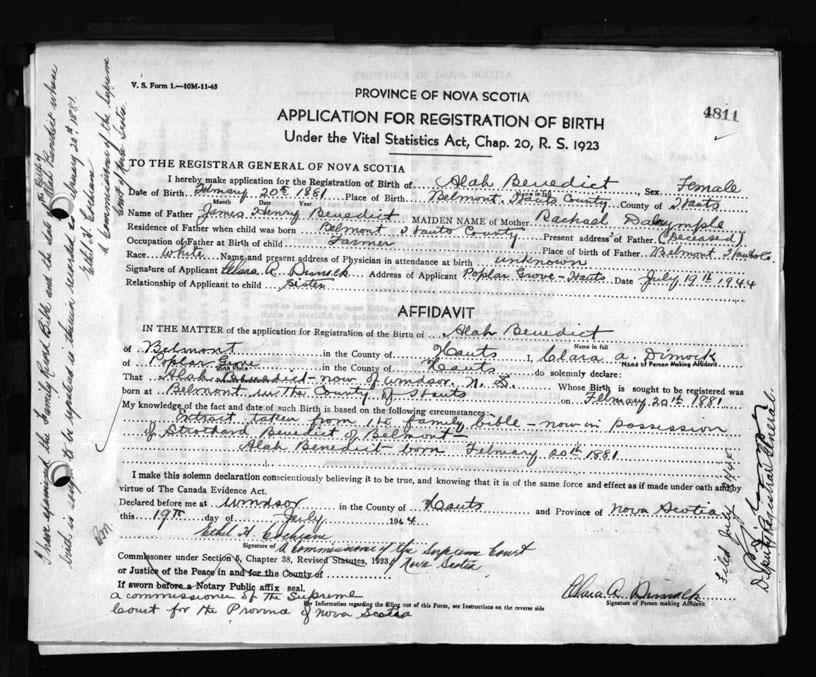 V. S. Form 1.—10M-11-43
PROVINCE OF NOVA SCOTIA
4811
APPLICATION FOR REGISTRATION OF BIRTH
Under the Vital Statistics Act, Chap. 20, R. S. 1923
TO THE REGISTRAR GENERAL OF NOVA SCOTIA
I hereby make application for the Registration of Birth of Alah Benedict, Sex Female
Name in full
Date of Birth February 20th 1881 Place of Birth Belmont, Hants County County of Hants
Month Date Year
Name of Father James Henry Benedict MAIDEN NAME of Mother Rachael Dalrymple
Residence of Father when child was born Belmont Hants County Present address of Father (Deceased)
Occupation of Father at Birth of child Farmer Place of birth of Father Belmont Hants Co.
Race White Name and present address of Physician in attendance at birth unknown
Signature of Applicant Clara A. Dimock Address of Applicant Poplar Grove - Hants Date July 19th 1944
Relationship of Applicant to child Sister
AFFIDAVIT
IN THE MATTER of the application for Registration of the Birth of Alah Benedict
Name in full
of Belmont in the County of Hants I, Clara A. Dimock
Name of Person Making Affidavit
of Poplar Grove in the County of Hants do solemnly declare:
Birth Place
That Alah Benedict - now of Windsor, N. S. Whose Birth is sought to be registered was
born at Belmont in the County of Hants on February 20th 1881
My knowledge of the fact and date of such Birth is based on the following circumstances:
Extract taken from the family bible - now in possession
of Strothard Benedict of Belmont -
Alah Benedict - born February 20th 1881.
I make this solemn declaration conscientiously believing it to be true, and knowing that it is of the same force and effect as if made under oath and by
virtue of The Canada Evidence Act.
Declared before me at Windsor in the County of Hants and Province of Nova Scotia
this 19th day of July 1944
Ethel H Cochrane
Signature of A Commissioner of the Supreme Court
Commissioner under Section 5, Chapter 38, Revised Statutes, 1923 Nova Scotia
or Justice of the Peace in and for the County of
If sworn before a Notary Public affix seal.
Clara A. Dimock
Signature of Person making Affidavit
a commissioner of the Supreme
For Information regarding the filling out of this Form, see Instructions on the reverse side
Court for the Province of Nova Scotia
I have examined the Family Record Bible and the date of the birth of Alah Benedict whose
birth is sought to be registered is therein recorded as February 20th, 1881.
Ethel H Cochrane
A Commissioner of the Supreme
Court of Nova Scotia.
Filed July 1944
Deputy Registrar General